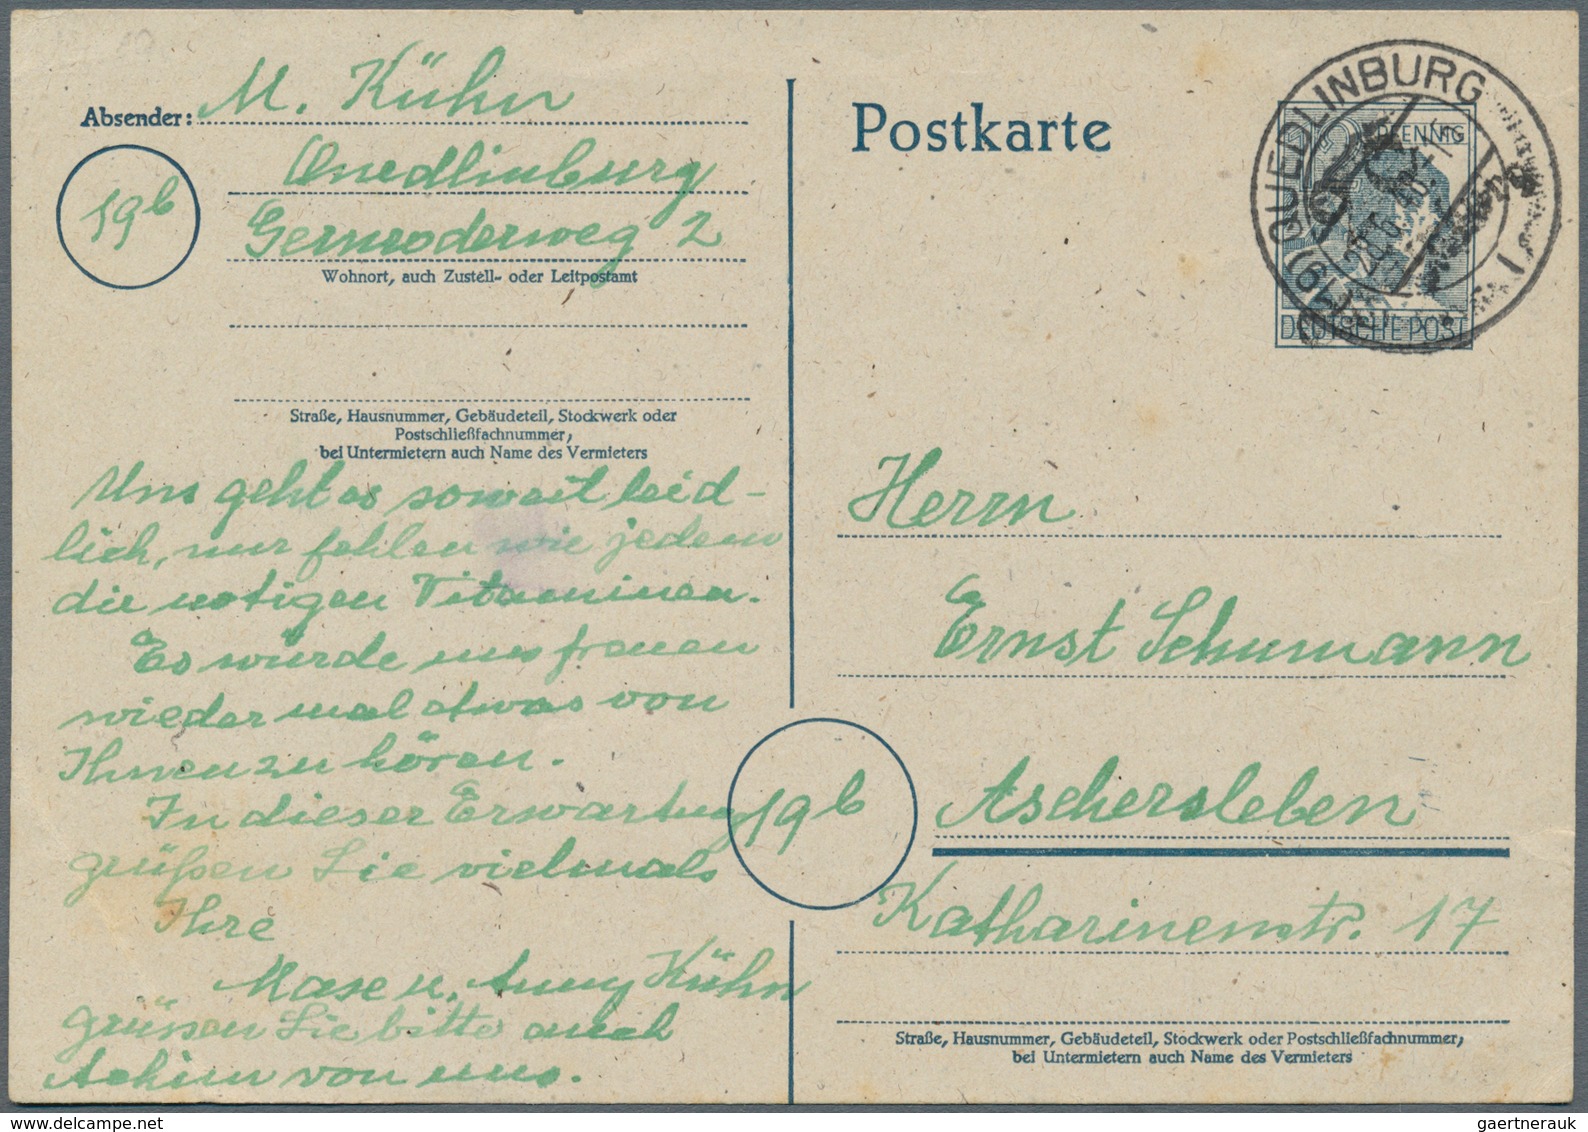 Absender: M. Kühn
Quedlinburg
19b
Gernroderweg 2
Wohnort, auch Zustell- oder Leitpostamt
Straße, Hausnummer, Gebäudeteil, Stockwerk oder
Postschließfachnummer,
bei Untermietern auch Name des Vermieters
Uns geht es soweit leid-
lich, nur fehlen wie jedem
die notigen Vitaminen.
Es würde uns freuen
wieder mal etwas von
Ihnen zu hören.
In dieser Erwartung
grüßen Sie vielmals
Ihre
u. Anny Kühn
grüssen Sie bitte auch
Achim von uns.
Postkarte
PFENNIG
DEUTSCHE POST
QUEDLINBURG
Herrn
Ernst Schumann
19b
Aschersleben
Katharinenstr. 17
Straße, Hausnummer, Gebäudeteil, Stockwerk oder Postschließfachnummer,
bei Untermietern auch Name des Vermieters
gaertnerauk